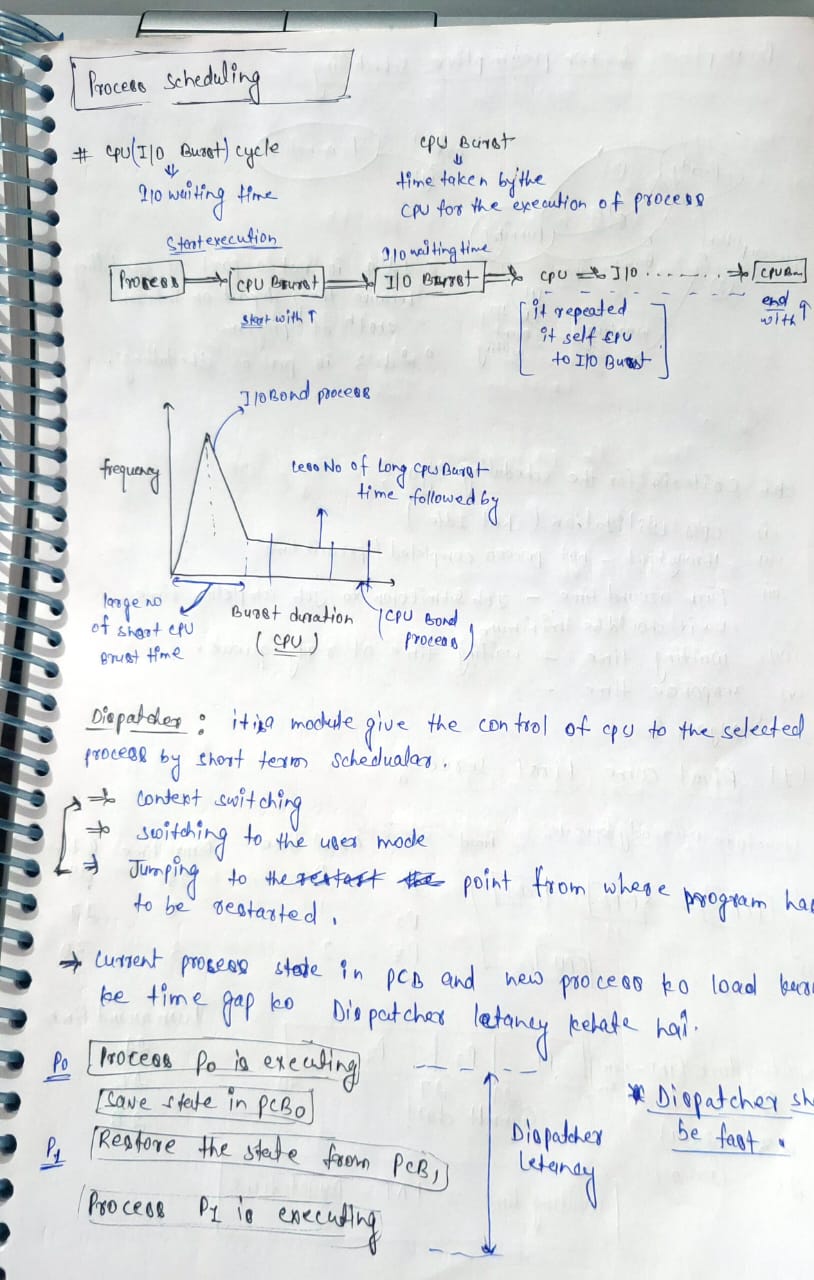 Process Scheduling
# CPU(I/O Burst) cycle
I/O waiting time
CPU Burst
time taken by the
CPU for the execution of process
Start execution
I/O waiting time
Process ⇒ CPU Brurst ⇒ I/O Burst ⇒ CPU ⇒ I/O ........ ⇒ CPU Bu
start with ↑
end with ↑
[it repeated
it self CPU
to I/O Burst]
I/O Bond process
frequency
Less No of Long CPU Burst
time followed by
large no
of short CPU
Brust time
Burst duration
(CPU)
(CPU Bond
process)
Dispatcher : it is a module give the control of cpu to the selected
process by short term schedualar.
⇒ Context switching
⇒ switching to the user mode
⇒ Jumping to the restart the point from where program ha
to be restarted.
→ Current process state in PCB and new process ko load kar
ke time gap ko Dispatcher letancy kehate hai.
P0 Process P0 is executing
Save state in PCB0
P1 Restore the state from PCB1
Process P1 is executing
Dispatcher
Letency
* Dispatcher sh
be fast.